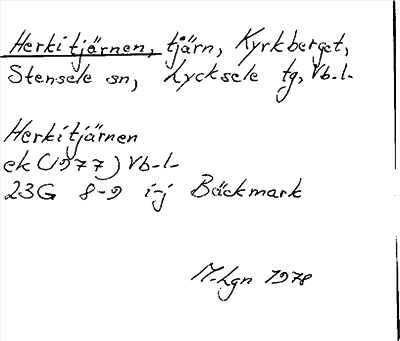 Herkitjärnen, tjärn, Kyrkberget,
Stensele sn, Lycksele tg, Vb-l-
Herkitjärnen
ek (1977) Vb-l-
23G 8-9 i-j Bäckmark
M-Lgn 1978